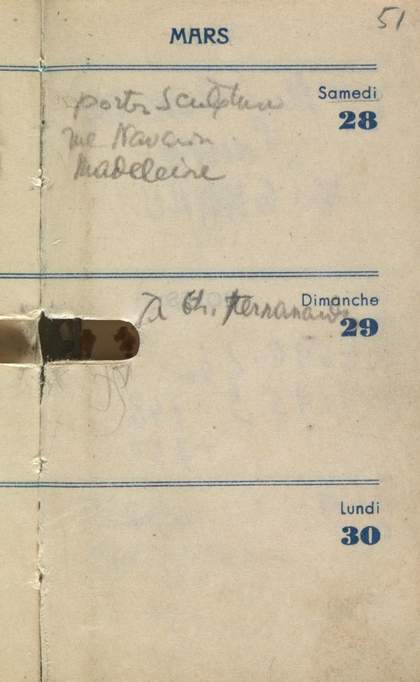 51
MARS
Samedi
28
porter Sculpture
rue Navarin
Madeleine
Dimanche
29
à Ch.
Lundi
30